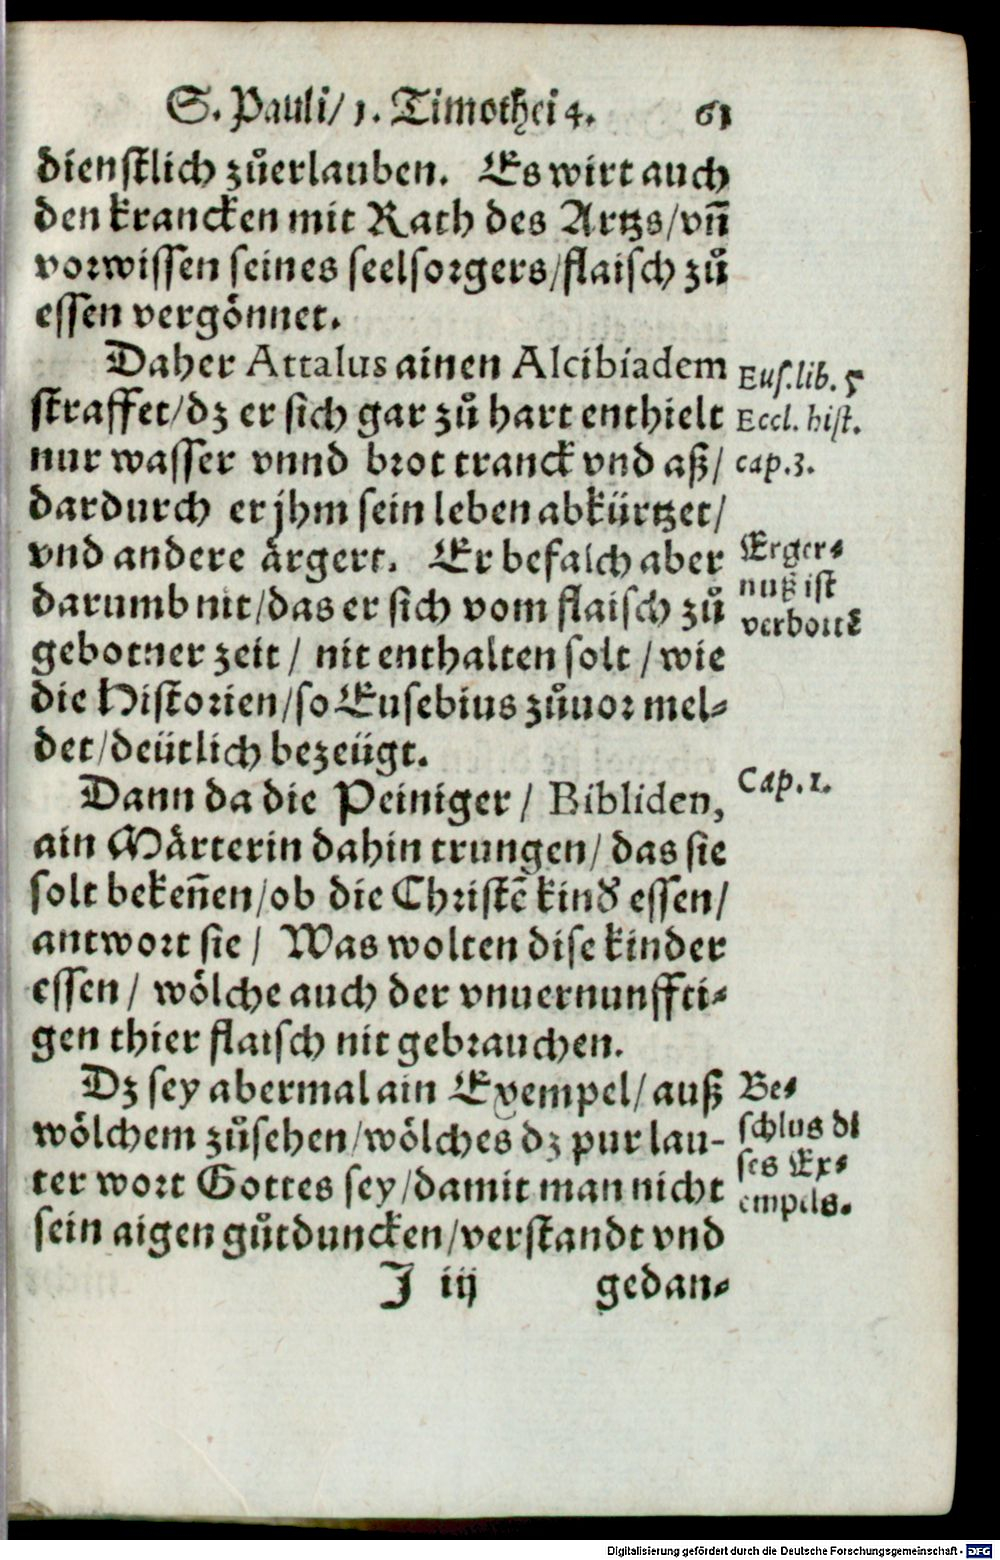 S. Pauli/ 1. Timothei 4. 61
dienstlich zůerlauben. Es wirt auch
den krancken mit Rath des Artzs/vn̄
vorwissen seines seelsorgers/flaisch zů
essen vergönnet.
Daher Attalus ainen Alcibiadem
straffet/dz er sich gar zů hart enthielt
nur wasser vnnd brot tranck vnd aß/
dardurch er jhm sein leben abkürtzet/
vnd andere årgert. Er befalch aber
darumb nit/das er sich vom flaisch zů
gebotner zeit/ nit enthalten solt/wie
die Historien/so Eusebius zůuor mel-
det/deütlich bezeügt.
Eus. lib. 5
Eccl. hist.
cap.3.
Erger-
nuß ist
verbottē
Dann da die Peiniger/ Bibliden,
ain Mårterin dahin trungen/ das sie
solt beken̄en/ob die Christē kind essen/
antwort sie/ Was wolten dise kinder
essen/ wölche auch der vnuernunffti-
gen thier flaisch nit gebrauchen.
Cap.1.
Dz sey abermal ain Exempel/ auß
wölchem zůsehen/wölches dz pur lau-
ter wort Gottes sey/damit man nicht
sein aigen gůtduncken/verstandt vnd
Be-
schlus di
ses Ex-
empels.
J iij gedan-
Digitalisierung gefördert durch die Deutsche Forschungsgemeinschaft - DFG